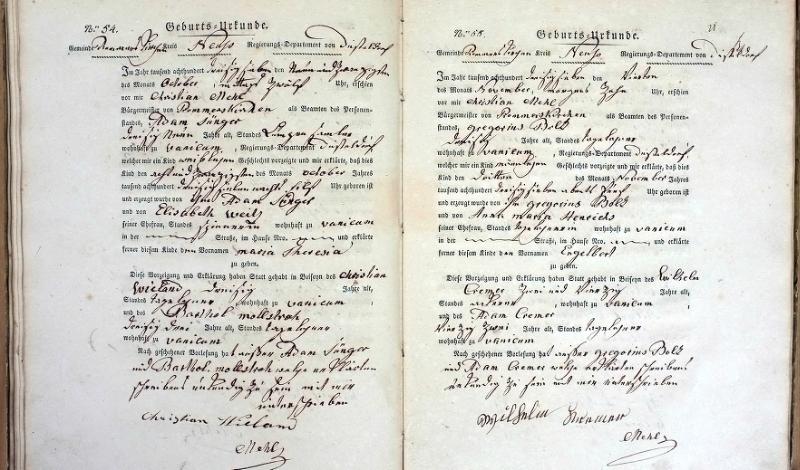 Nro 54. Geburts-Urkunde.
Gemeinde Rommerskirchen Kreis Neuss Regierungs-Departement von Düsseldorf
Im Jahr tausend achthundert dreisig sieben den Neun und zwanzigsten
des Monats October, mittags zwölf Uhr, erschien
vor mir Christian Mehl
Bürgermeister von Rommerskirchen als Beamten des Personen-
standes, Adam Sünger
dreisig Neun Jahre alt, Standes
wohnhaft zu vanicum, Regierungs-Departement Düsseldorf
welcher mir ein Kind weiblichen Geschlechts vorzeigte und mir erklärte, daß dies
Kind den acht und zwanzigsten des Monats October Jahres
tausend achthundert dreisig sieben nachts eilf Uhr geboren ist
und erzeugt wurde von ihm Adam Sünger
und von Elisabeth Weitz
seiner Ehefrau, Standes wohnhaft zu vanicum
in der Straße, im Hause Nro. und erklärte
ferner diesem Kinde den Vornamen maria Theresia
zu geben.
Diese Vorzeigung und Erklärung haben Statt gehabt in Beiseyn des Christian
Wieland dreisig Jahre alt,
Standes tagelöhner wohnhaft zu vanicum,
und des Barthol. mollstroh
dreisig drei Jahre alt, Standes tagelöhner
wohnhaft zu vanicum
Nach geschehener Vorlesung hat außer Adam Sünger
und Barthol. mollstroh welche erklärten
schreibens unkundig zu sein mit mir
unterschrieben
Christian Wieland
Mehl
Nro 55. Geburts-Urkunde.
Gemeinde Rommerskirchen Kreis Neuss Regierungs-Departement von Düsseldorf
Im Jahr tausend achthundert dreisig sieben den Vierten
des Monats November, morgens Zehn Uhr, erschien
vor mir Christian Mehl
Bürgermeister von Rommerskirchen als Beamten des Personen-
standes, gregorius Bold
dreisig Jahre alt, Standes tagelöhner
wohnhaft zu vanicum, Regierungs-Departement Düsseldorf
welcher mir ein Kind männlichen Geschlechts vorzeigte und mir erklärte, daß dies
Kind den dritten des Monats November Jahres
tausend achthundert dreisig sieben abends fünf Uhr geboren ist
und erzeugt wurde von ihm gregorius Bold
und von Anna maria Henrichs
seiner Ehefrau, Standes tagelöhnerin wohnhaft zu vanicum
in der Straße, im Hause Nro. und erklärte
ferner diesem Kinde den Vornamen Engelbert
zu geben.
Diese Vorzeigung und Erklärung haben Statt gehabt in Beiseyn des Wilhelm
Cremer Zwei und Vierzig Jahre alt,
Standes ackerer, wohnhaft zu vanicum,
und des Adam Cremer
Vierzig Zwei Jahre alt, Standes tagelöhner
wohnhaft zu vanicum
Nach geschehener Vorlesung hat außer gregorius Bold
und Adam Cremer welche erklärten schreibens
unkundig zu sein mit mir unterschrieben
Wilhelm Kremer
Mehl